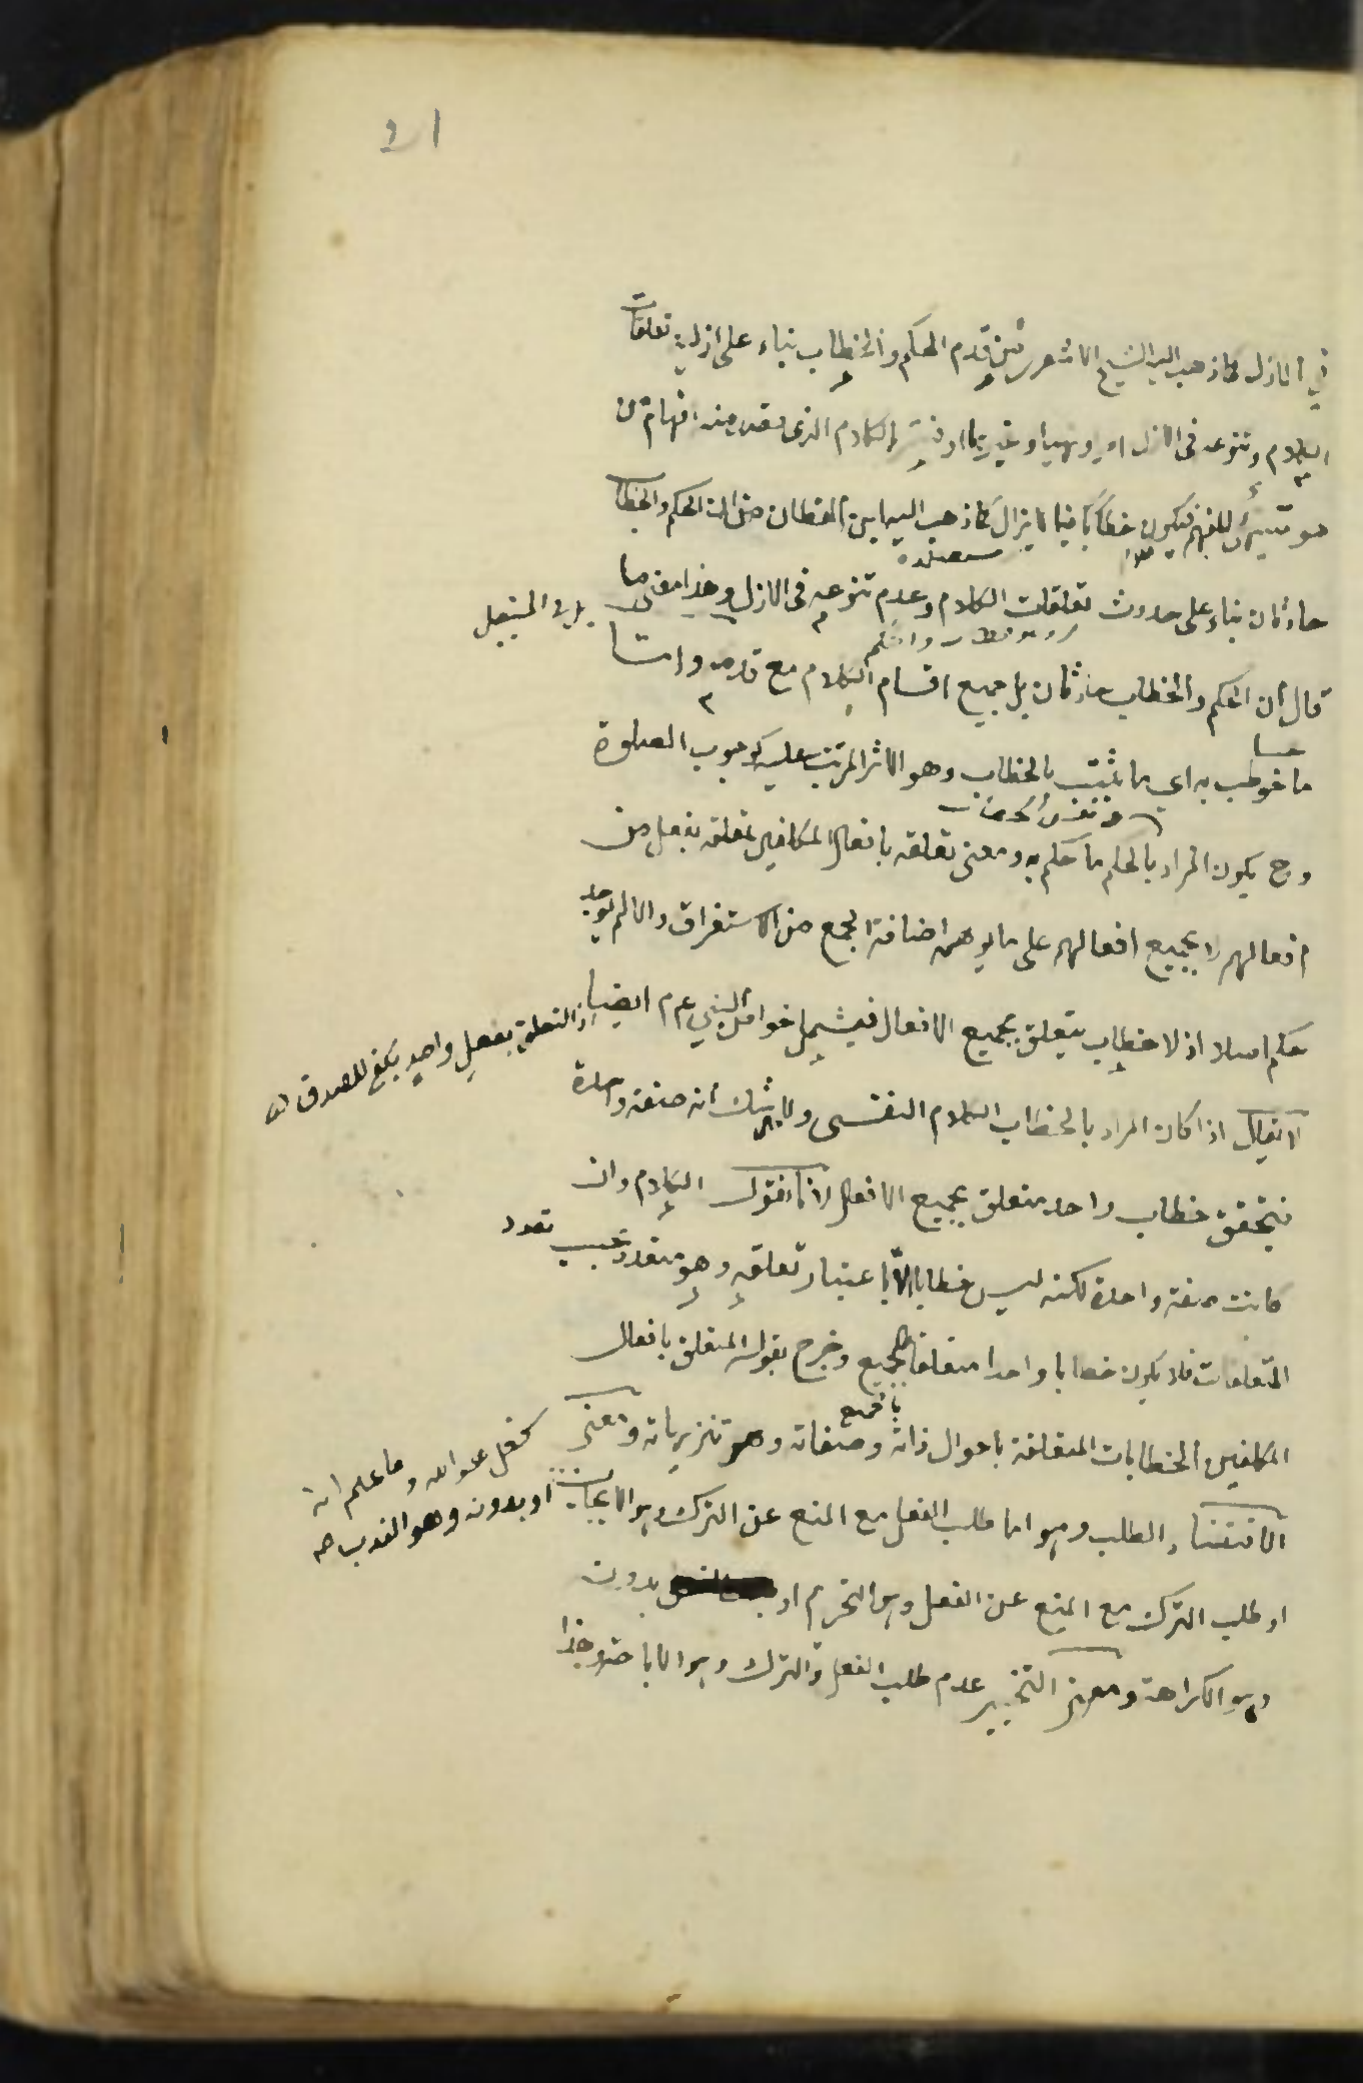 في الازل كما ذهب اليه الشيخ الاشعري من قدم الحكم والخطاب بناء على ازلية تعلقات
الكلام وتنوعه في الازل امرا ونهيا وغيرهما او الكلام الذي يقصد منه افهام من
هو متهيئ للفهم فيكون خطابا فيما لا يزال كما ذهب اليه ابن القطان من ان الحكم والخطاب
حادثان بناء على حدوث تعلقات الكلام وعدم تنوعه في الازل وهذا معنى ما
قال ان الحكم والخطاب حادثان بل جميع اقسام الكلام مع قدمه واما
ما خوطب به اي ما ثبت بالخطاب وهو الاثر المرتب عليه كوجوب الصلوة
وح يكون المراد بالحكم ما حكم به ومعنى تعلقه بافعال المكلفين تعلقه بفعل من
افعالهم لا بجميع افعالهم على ما يوهم اضافة الجمع من الاستغراق والا لم يوجد
حكم اصلا اذ لا خطاب يتعلق بجميع الافعال فيشمل خواص النبي عم ايضا
اذ التعلق بفعل واحد يكفي للصدق
لا يقال اذا كان المراد بالخطاب الكلام النفسي ولا شك انه صفة واحدة
فيتحقق خطاب واحد متعلق بجميع الافعال لانا نقول الكلام وان
كانت صفة واحدة لكنه ليس خطابا الا باعتبار تعلقه وهو متعدد بحسب تعدد
المتعلقات فلا يكون خطابا واحدا متعلقا بالجميع وخرج بقوله المتعلق بافعال
المكلفين الخطابات المتعلقة باحوال ذاته وصفاته وتنزيهاته ومعنى
الاقتضاء الطلب وهو اما طلب الفعل مع المنع عن الترك وهو الايجاب
او بدونه وهو الندب صح
او طلب الترك مع المنع عن الفعل وهو التحريم او بدون
وهو الكراهة ومعنى التخيير عدم طلب الفعل والترك وهو الاباحة وهذا